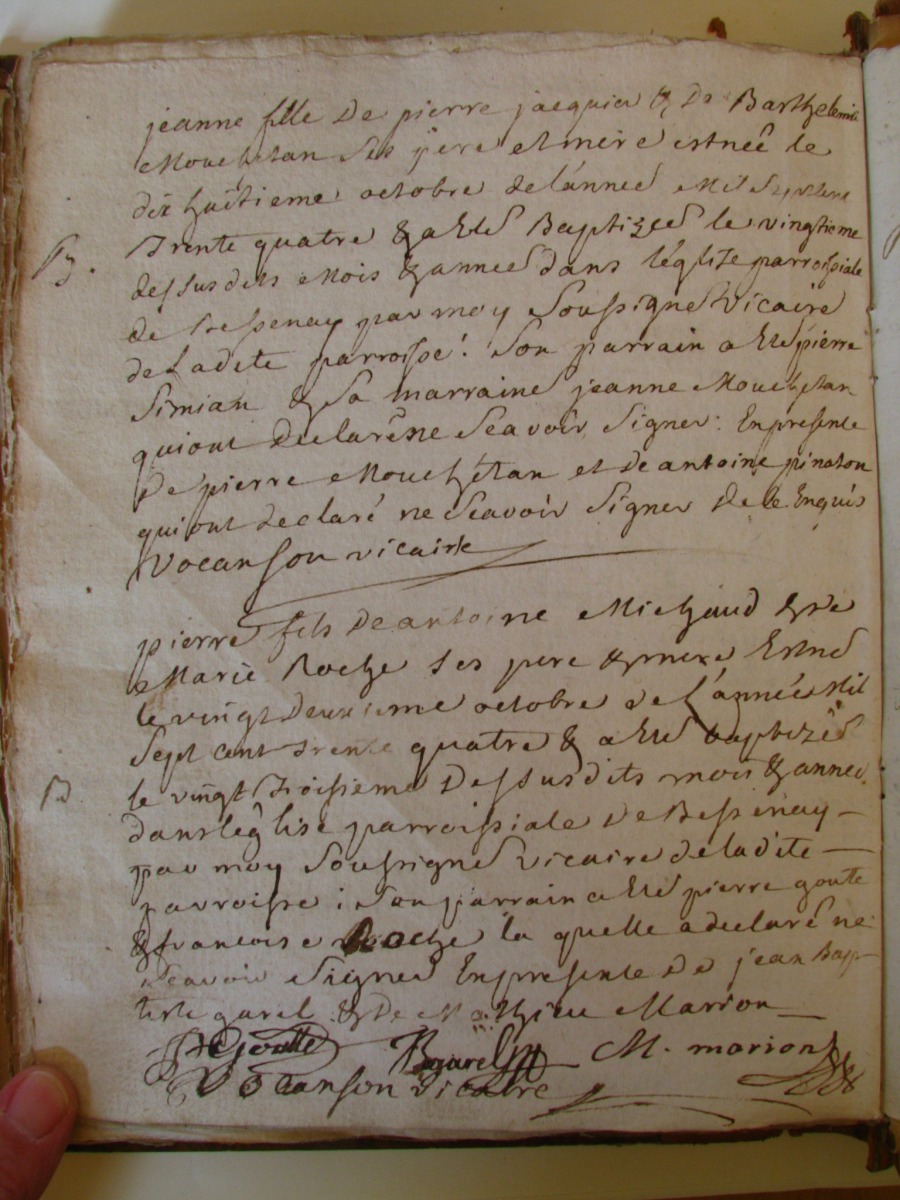 jeanne fille De pierre jacquier & De Barthelemie
Mouchetan Ses pere et mere est née le
dix huitieme octobre de l'année Mil Sept cent
Trente quatre & a Eté Baptizée le vingtieme
B.
dessus dits Mois & année dans l'églize parroissiale
de Bessenay par moy Soussigné Vicaire
de Ladite parroisse. Son parrain a Eté pierre
Simian & Sa marraine jeanne Mouchetan
qui ont Declaré ne Scavoir Signer: En presente
De pierre Mouchétan et de antoine pinaton
qui ont declaré ne Scavoir Signer De ce Enquis
Vocanson vicaire
pierre fils De antoine Michaud & de
Marie Roche Ses pere & mere Est né
le vingt Deuxieme octobre de L'année Mil
Sept cent Trente quatre & a Eté baptizé
B
le vingt Troisieme Dessusdits mois & année
dans l'église parroissiale De Bessenay
par moy Soussigné Vicaire de ladite
parroisse; Son parrain a Eté pierre goutte
& francoise Roche la quelle a declaré ne
Scavoir Signer En presente De jean Bap
tiste garel & De Mathieu Marion
P Goutte B garel M. marion
Vocanson vicaire